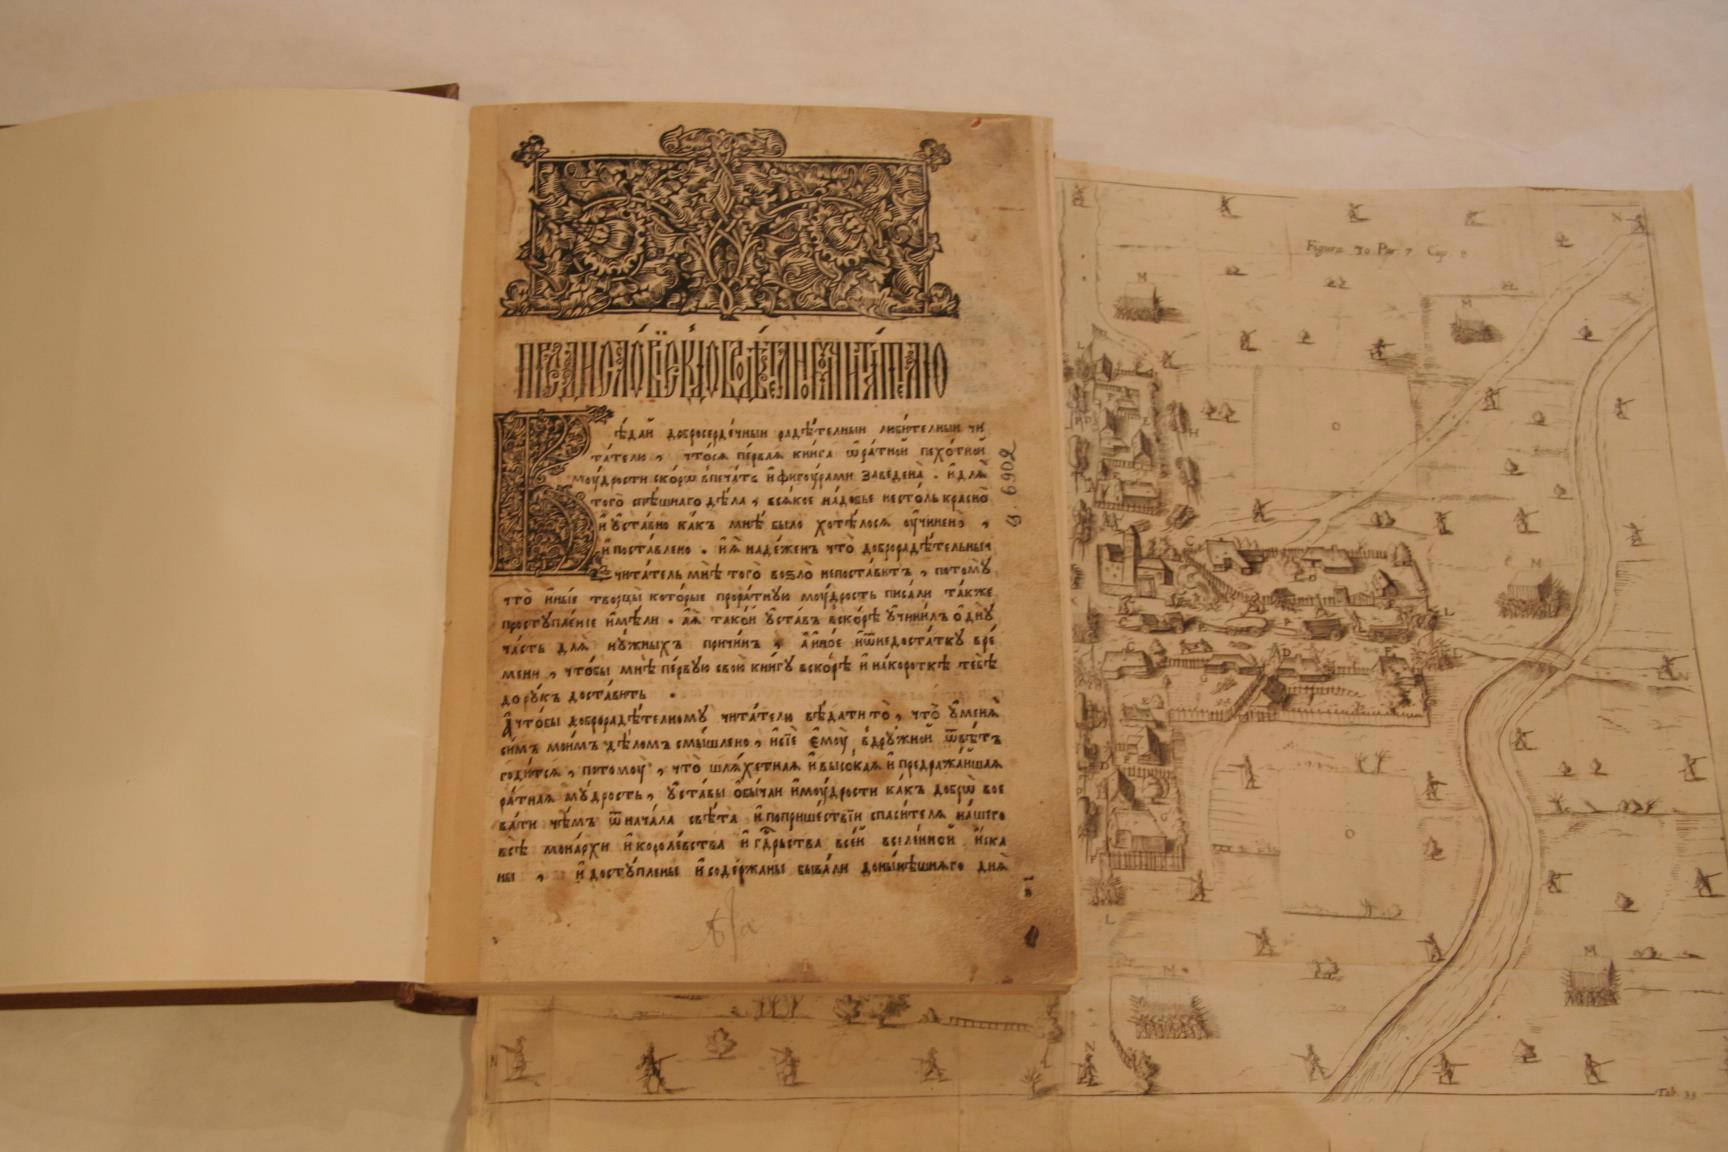 Предислові́е кдоброродѣ́телному читателю
Вѣ́дай добросерде́чныи радѣ́телныи люби́телныи чи
та́телю, что́ся пе́рвая кни́га ѿра́тной пѣхо́тной
мꙋ́дрости ско́рѡ впеча́ть и҆фигꙋ́рами заведена̀. и҆длѧ̀
того̀ спѣ́шнаго дѣ́ла, вся́кое на́добье несто́ль красно̀
и҆ ᲂу҆ста́вно ка́къ мнѣ̀ было хотѣ́лося ᲂу҆чинено̀,
и҆поста́влено. и҆ꙗ҆̀ наде́женъ что̀ доброрадѣ́тельныи
чита́тель мнѣ̀ того̀ во ѕло̀ непоста́витъ, пото́мꙋ
что̀ и҆ны́е творцы̀ которые прора́тнꙋю мꙋ́дрость писа́ли та́кже
простꙋпле́нїе и҆мѣ́ли. а҆ꙗ҆̀ тако́й ᲂу҆ста́въ вско́рѣ ᲂу҆чини́лъ ѻ҆днꙋ̀
ча́сть для нꙋ́жныхъ причи́нъ, а҆и҆но́е и҆ѿнедоста́ткꙋ вре́
мени, что́бы мнѣ̀ пе́рвꙋю свою кни́гꙋ вско́рѣ и҆ нако́роткѣ тебѣ̀
до рꙋ́къ доста́вить.
А҆что́бы доброрадѣ́телномꙋ чита́телю вѣ́дати то̀, что̀ ᲂу҆меня̀
си́мъ мои́мъ дѣ́ломъ смы́шлено, и҆сїѐ є҆мꙋ̀ вдрꙋжно́й ѿвѣ́тъ
годи́тся, потомꙋ̀, что̀ шляхе́тная и҆ высо́кая и҆ предража́йшая
ра́тная мꙋ́дрость, ᲂу҆ста́вы ѻ҆бы́чаи и҆мꙋ́дрости ка́къ до́брѡ вое
ва́ти чѣ́мъ ѿнача́ла свѣ́та и҆поприше́ствїи спаси́теля на́шего
всѣ̀ мона́рхи и҆короле́вства и҆ гдⷭ҇рьства все́й вселе́нной и҆ска
ны, и҆достꙋ́плены и҆соде́ржаны быва́ли доны́нѣшняго дня̀
g. 6902
Figura 30 Par 7 Cap 8
Tab. 33
N
M
M
L
H
C
L
M
O
D
F
C
L
N
O
M
M
N
N